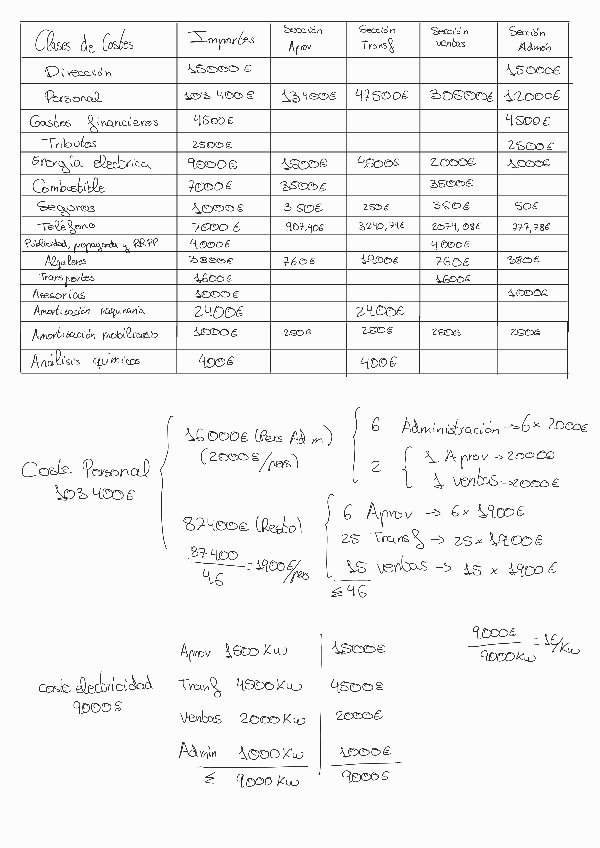 Clases de Costes Importes Sección Aprov Sección Transf Sección Ventas Sección Admón
Dirección 15000€ 15000€
Personal 103400€ 13400€ 47500€ 30500€ 12000€
Gastos financieros 4500€ 4500€
Tributos 2500€ 2500€
Energía electrica 9000€ 1500€ 4500€ 2000€ 1000€
Combustible 7000€ 3500€ 3500€
Seguros 1000€ 350€ 250€ 350€ 50€
Teléfono 7000€ 907,40€ 3240,74€ 2074,08€ 777,78€
Publicidad, propaganda y RR.PP 4000€ 4000€
Alquileres 3800€ 760€ 1900€ 760€ 380€
Transportes 1600€ 1600€
Asesorías 1000€ 1000€
Amortización maquinaria 2400€ 2400€
Amortización mobiliario 1000€ 250€ 250€ 250€ 250€
Análisis químicos 400€ 400€
Coste Personal
103400€
16000€ (Pers Adm)
(2000€/pers)
6 Administración → 6 x 2000€
2
1 Aprov → 2000€
1 ventas → 2000€
87400€ (Resto)
87.400
46
= 1900€/pers
6 Aprov → 6 x 1900€
25 Transf → 25 x 1900€
15 ventas → 15 x 1900€
Σ 46
coste electricidad
9000€
Aprov 1500 Kw 1500€
Tranf 4500 Kw 4500€
Ventas 2000 Kw 2000€
Admin 1000 Kw 1000€
Σ 9000 Kw 9000€
9000€
9000 Kw
= 1€/Kw